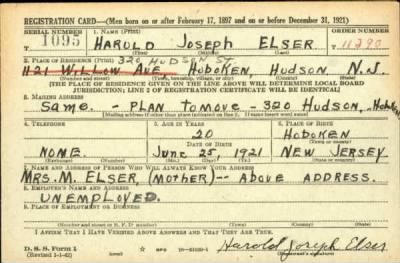 REGISTRATION CARD—(Men born on or after February 17, 1897 and on or before December 31, 1921)
SERIAL NUMBER 1. NAME (Print) ORDER NUMBER
1095 HAROLD JOSEPH ELSER 11290
(First) (Middle) (Last)
2. PLACE OF RESIDENCE (Print) 320 HUDSON ST.
1121 WILLOW AVE. HOBOKEN, HUDSON N.J.
(Number and street) (Town, township, village, or city) (County) (State)
[THE PLACE OF RESIDENCE GIVEN ON THE LINE ABOVE WILL DETERMINE LOCAL BOARD
JURISDICTION; LINE 2 OF REGISTRATION CERTIFICATE WILL BE IDENTICAL]
3. MAILING ADDRESS
SAME. - PLAN TO MOVE - 320 HUDSON, Hoboken
[Mailing address if other than place indicated on line 2. If same insert word same]
4. TELEPHONE 5. AGE IN YEARS 6. PLACE OF BIRTH
20 HOBOKEN
DATE OF BIRTH (Town or county)
NONE. JUNE 25, 1921 NEW JERSEY
(Exchange) (Number) (Mo.) (Day) (Yr.) (State or country)
7. NAME AND ADDRESS OF PERSON WHO WILL ALWAYS KNOW YOUR ADDRESS
MRS. M. ELSER (MOTHER) -- ABOVE ADDRESS.
8. EMPLOYER'S NAME AND ADDRESS
UNEMPLOYED.
9. PLACE OF EMPLOYMENT OR BUSINESS
(Number and street or R. F. D. number) (Town) (County) (State)
I AFFIRM THAT I HAVE VERIFIED ABOVE ANSWERS AND THAT THEY ARE TRUE.
D. S. S. Form 1
(Revised 1-1-42) GPO Harold Joseph Elser
(Registrant's signature)